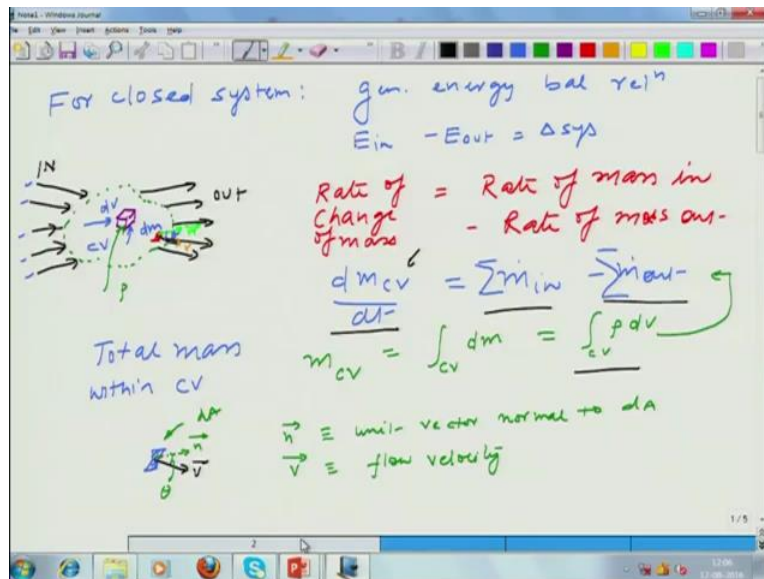 Note1 - Windows Journal
File Edit View Insert Actions Tools Help
B I
For closed system: gen. energy bal relⁿ
Ein - Eout = Δsys
IN
OUT
dv
cv
dm
ρ
n
v
Rate of Change of mass = Rate of mass in - Rate of mass out
dm_cv / dt = Σṁin - Σṁout
Total mass within cv
m_cv = ∫_cv dm = ∫_cv ρ dv
dA
n⃗
v⃗
θ
n⃗ ≡ unit vector normal to dA
v⃗ ≡ flow velocity
1/5
2
12:06
12-08-2016